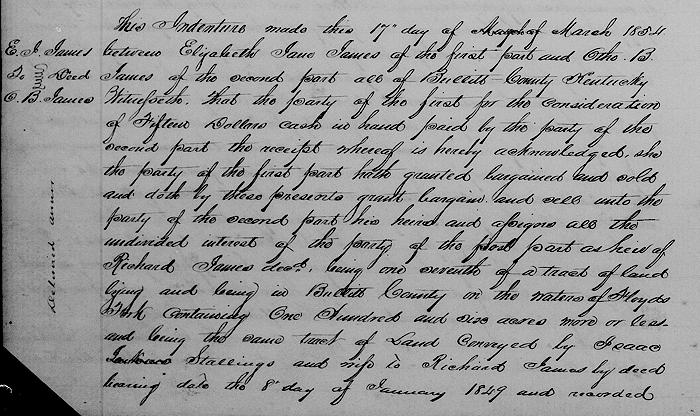 This Indenture made this 17" day of March of March 1854
between Elizabeth Jane James of the first part and Otho. B.
James of the second part all of Bullitt County Kentucky
Witnesseth. That the party of the first for the consideration
of Fifteen Dollars cash in hand paid by the party of the
second part the receipt whereof is hereby acknowledged, she
the party of the first part hath granted bargained and sold
and doth by these presents grant bargain and sell unto the
party of the second part his heirs and assigns all the
undivided interest of the party of the first part as heir of
Richard James decd. being one seventh of a tract of land
lying and being in Bullitt County on the waters of Floyds
Fork containing One Hundred and six acres more or less
and being the same tract of Land Conveyed by Isaac
Stallings and wife to Richard James by deed
bearing date the 8" day of January 1849 and recorded
E. J. James
To Deed
O. B. James
Delivered